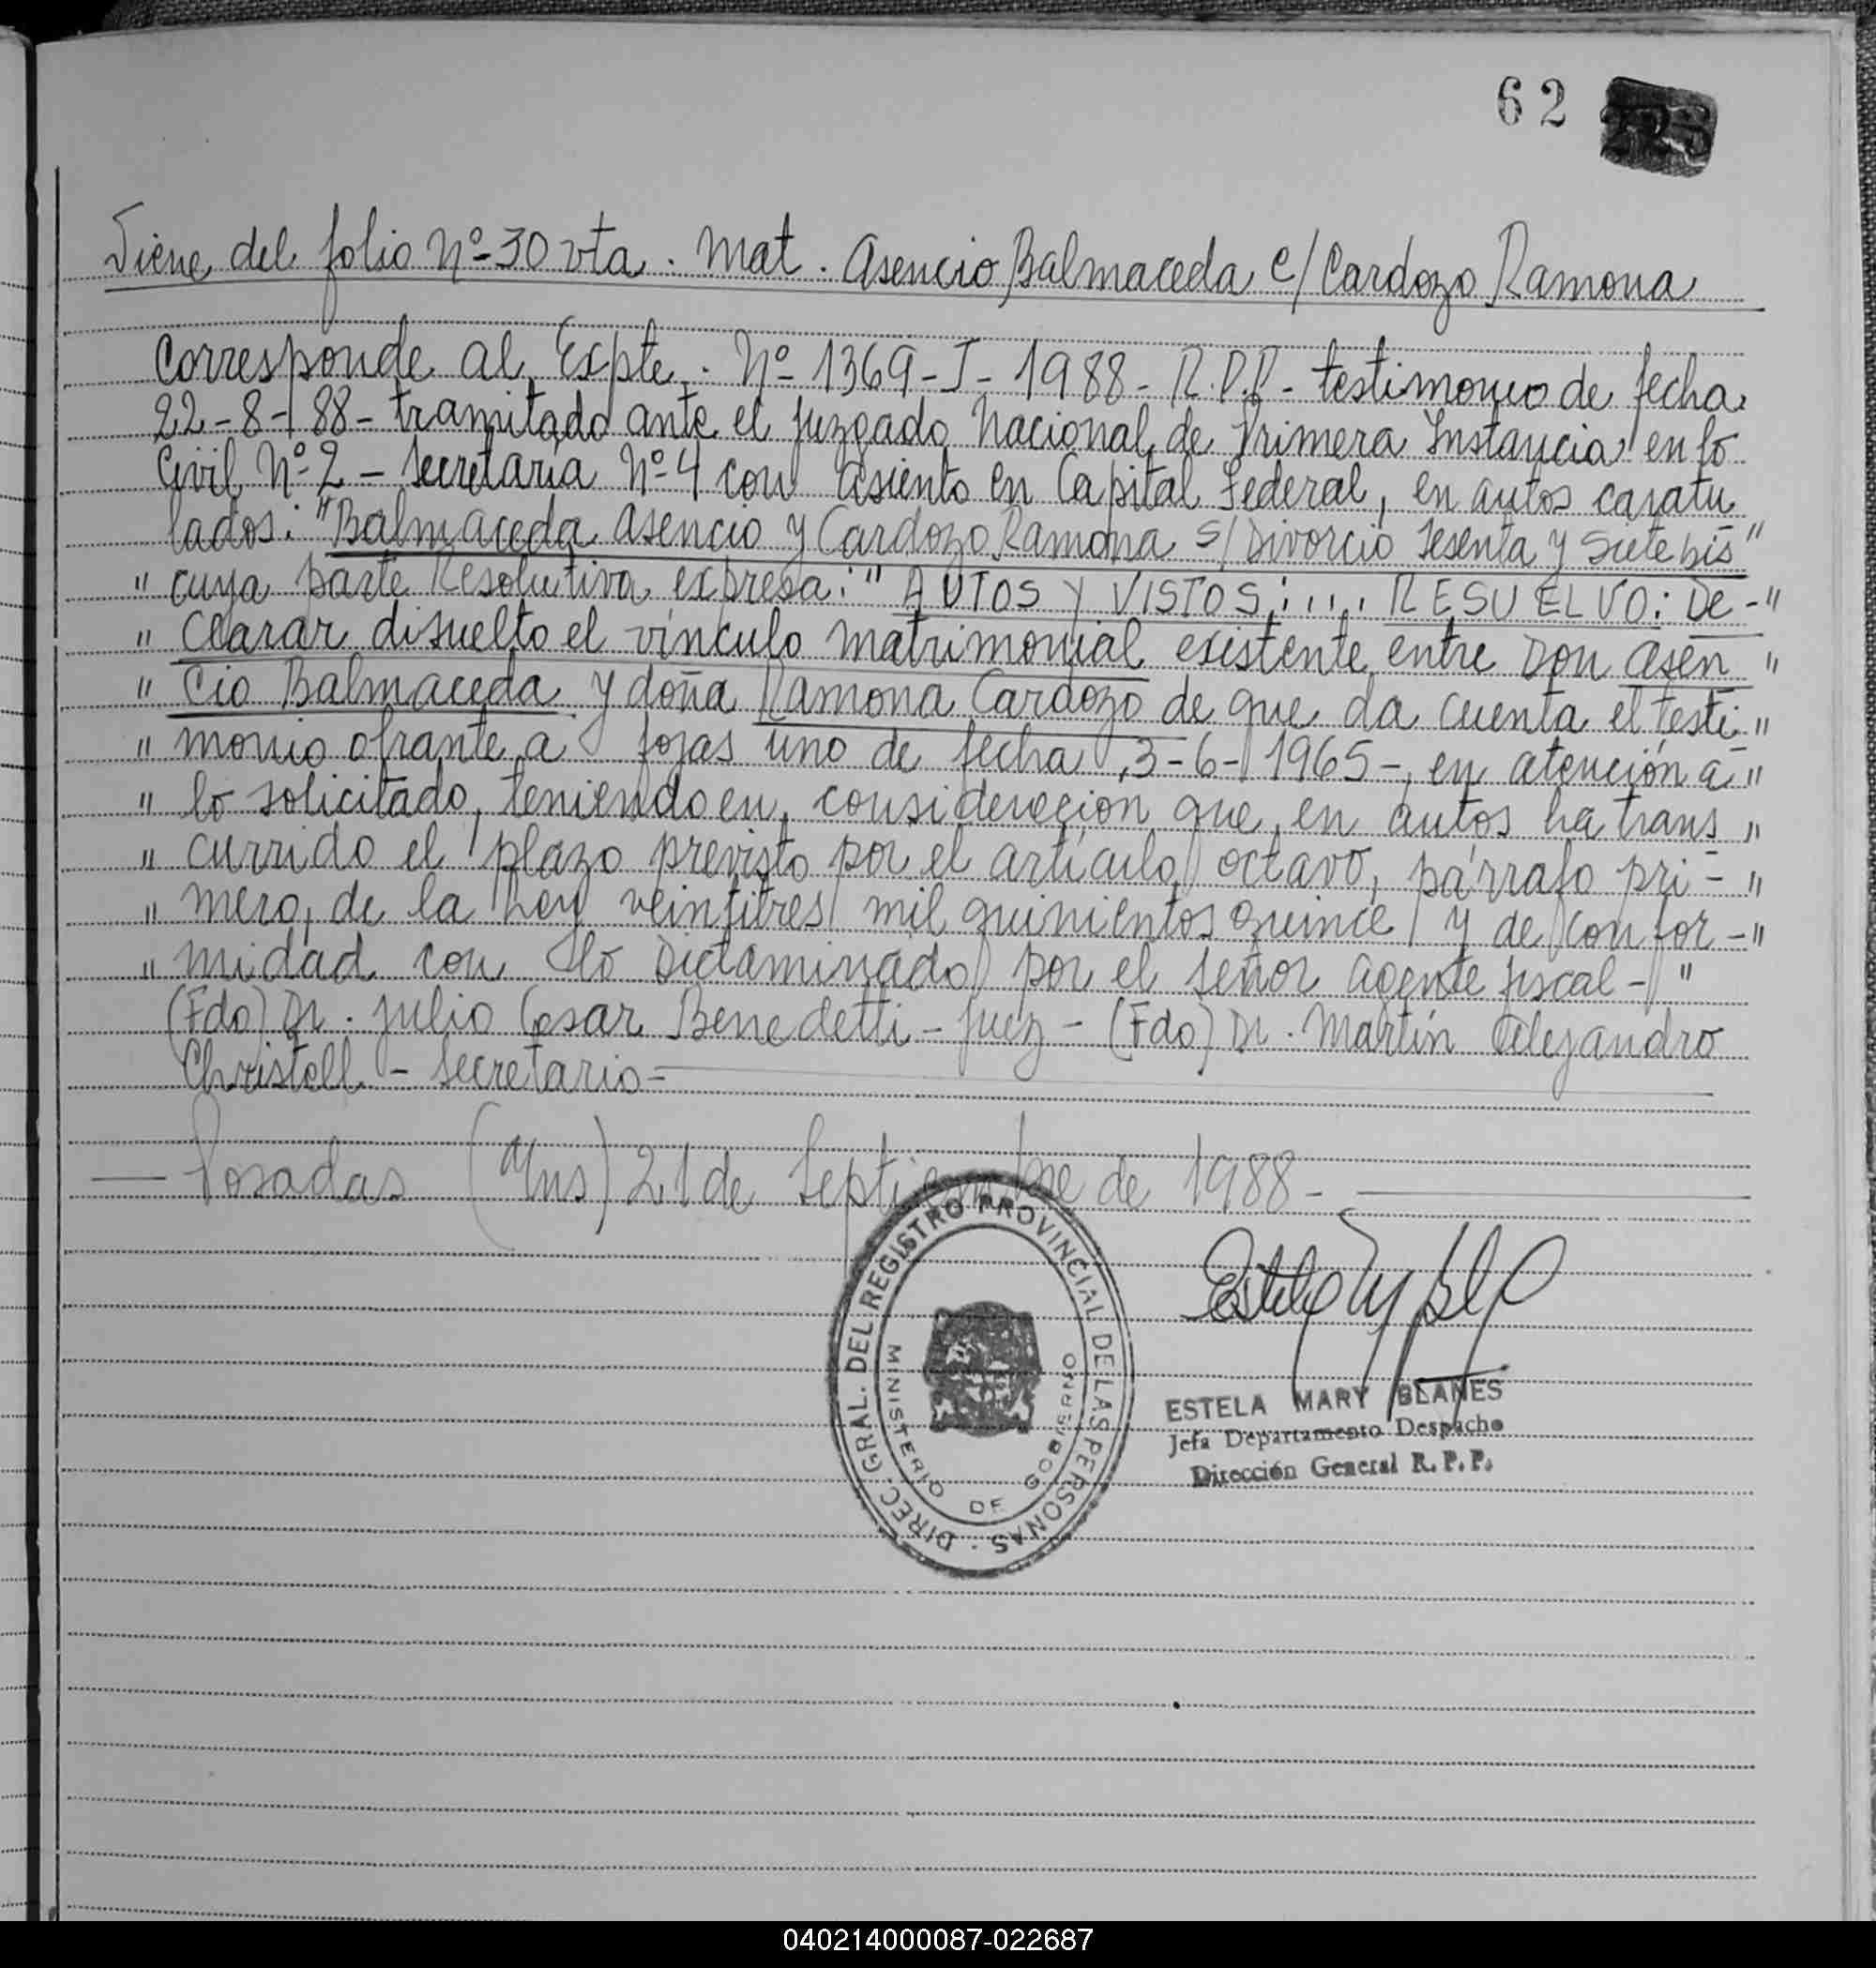 62
Viene del folio Nº 30 vta. Mat. Asencio Balmaceda c/ Cardozo Ramona
Corresponde al Expte. Nº 1369-J-1988- R.P.P- testimonio de fecha
22-8-88- tramitado ante el Juzgado Nacional de Primera Instancia en lo
Civil Nº 2 - Secretaría Nº 4 con asiento en Capital Federal, en autos caratu
lados: "Balmaceda Asencio y Cardozo Ramona s/ Divorcio Sesenta y Siete bis"
" cuya parte Resolutiva expresa: " AUTOS Y VISTOS:.... RESUELVO: De-"
" clarar disuelto el vínculo matrimonial existente entre Don Asen "
" cio Balmaceda y doña Ramona Cardozo de que da cuenta el testi- "
" monio obrante a fojas uno de fecha 3-6-1965-, en atención a- "
" lo solicitado, teniendo en consideración que en autos ha trans "
" currido el plazo previsto por el artículo octavo, párrafo pri- "
" mero, de la Ley veintitres mil quinientos quince y de confor-"
" midad con lo Dictaminado por el señor agente fiscal- "
(Fdo) Dr. Julio Cesar Benedetti - Juez - (Fdo) Dr. Martín Alejandro
Christell - Secretario-
— Posadas (Mns) 21 de Septiembre de 1988-
DIREC. GRAL. DEL REGISTRO PROVINCIAL DE LAS PERSONAS.
MINISTERIO DE GOBIERNO
ESTELA MARY BLANES
Jefa Departamento Despacho
Dirección General R.P.P.
040214000087-022687